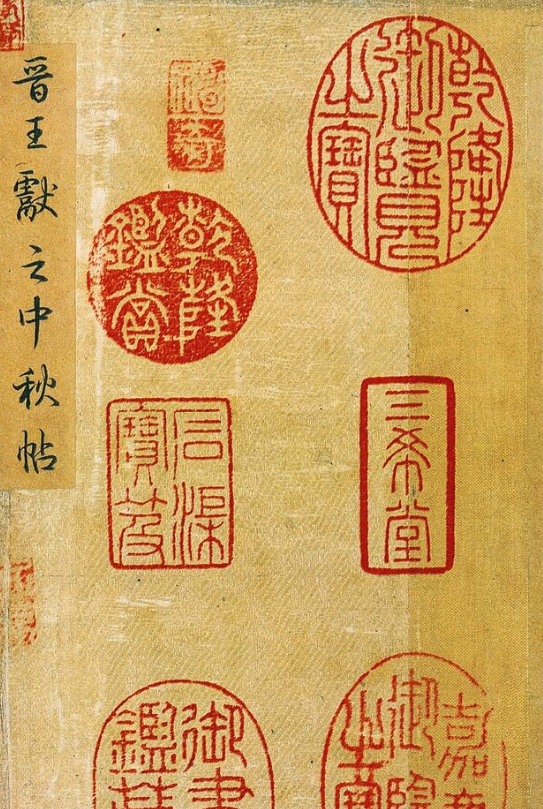 乾隆
御覽
之寶
三希堂
嘉慶
御覽
之寶
乾隆
鑑賞
石渠
寶笈
御書
鑑藏
晋王獻之中秋帖